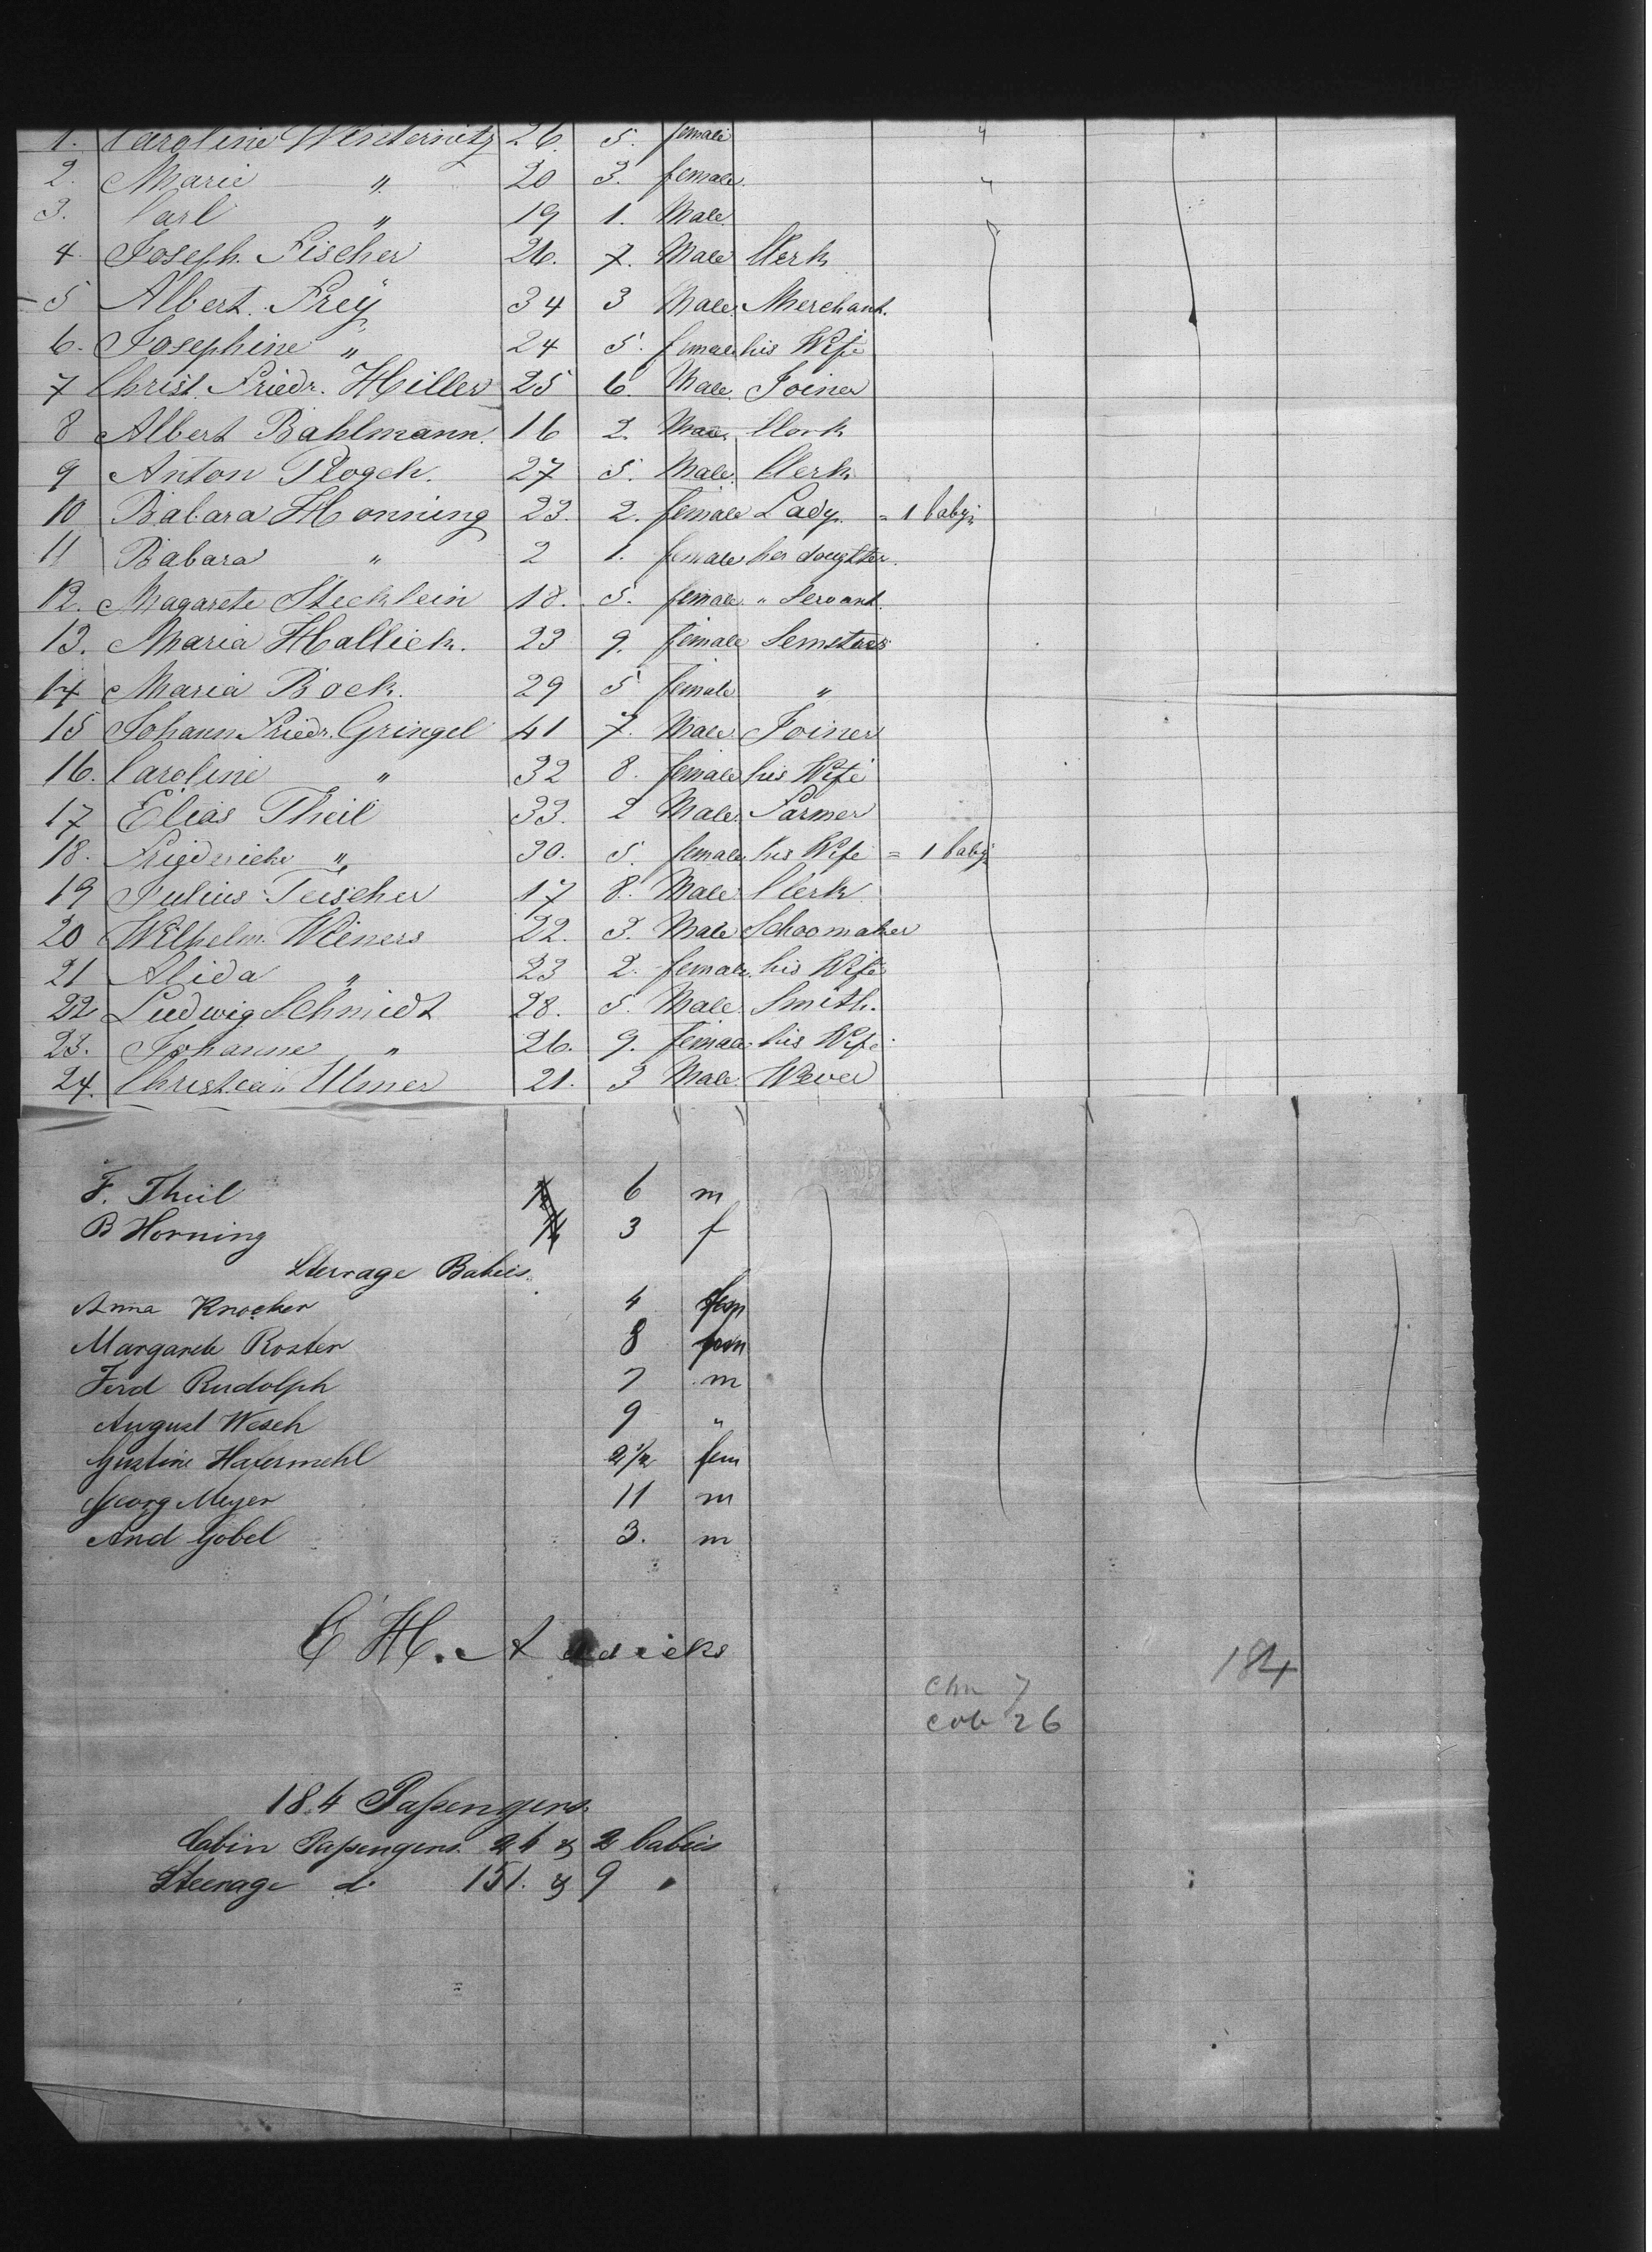 1. Caroline Winternitz 26. 5. female "
2. Marie " 20 3. female "
3. Carl " 19 1. Male
4. Joseph Fischer 26. 7. Male Clerk
5 Albert Frey 34 3 Male Merchant.
6. Josephine " 24 5. female his Wife
7 Christ. Friedr. Hiller 25 6. Male Joiner
8 Albert Bahlmann. 16 2. Male Clerk
9 Anton Plogch. 27 5. Male. Clerk
10 Babara Honning 23. 2. female Lady. = 1 baby
11 Babara " 2 1. female her doughter.
12. Magarete Stecklein 18. 5. female " Servant.
13. Maria Hallich. 23 9. female Semstress
14 Maria Bock. 29 5 female "
15 Johann Friedr. Gringel 41 7. Male Joiner
16. Caroline " 32 8. female his Wife
17 Elias Theil 33. 2 Male Farmer
18. Friedricke " 30. 5. female his Wife = 1 baby
19 Julius Teischer 17 8. Male Clerk
20 Wilhelm Wieners 22. 3. Male Schoomaker
21 Alida " 23 2. female his Wife
22 Ludwig Schmidt 28. 5. Male Smith.
23. Johanne " 26. 9. female his Wife
24. Christian Ulmer 21. 3 Male. Wever
F. Theil 6 m
B Horning 3 f
Sterrage Babies.
Anna Knocher 4 fem
Margarete Roster 8 fem
Ferd Rudolph 7 m
August Wesch 9 "
Justine Hafermehl 2 1/2 fem
Georg Meyer 11 m
And Gobel 3. m
C H. A
184
Chn 7
Cob 26
184 Passengers
Cabin Passengers 24 & 2 babies
Steerage do 151. & 9 "